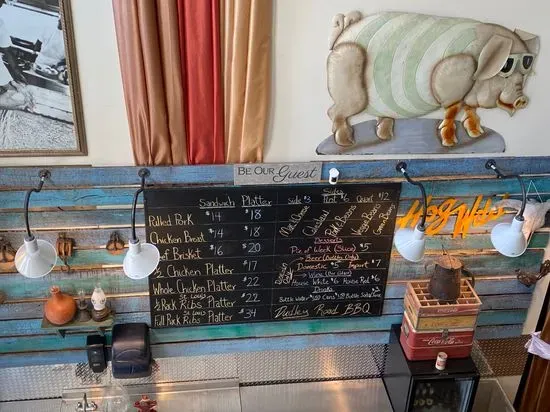 BE OUR Guest
Sandwich Platter
Pulled Pork $14 $18
Chicken Breast $14 $18
Beef Brisket $16 $20
1/2 Chicken Platter $17
Whole Chicken Platter $22
St. Louis
1/2 Rack Ribs Platter $22
St. Louis
Full Rack Ribs Platter $34
Sides
side $3 Pint $6 Quart $12
Coleslaw
BBQ Beans
Desserts
Pie of Week (Slice) $5
Beer
Domestic $5 Import $7
Wine
House White $6 House Red $6
Drinks
Bottle Water $1.00 Cans $1.50 Bottle Soda
Dudley Road BBQ
Hog Wild
Coca-Cola